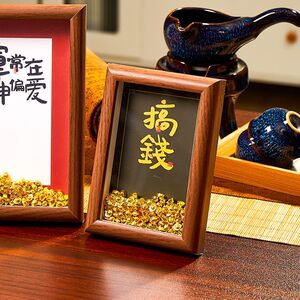 運常在
神偏爱
搞錢